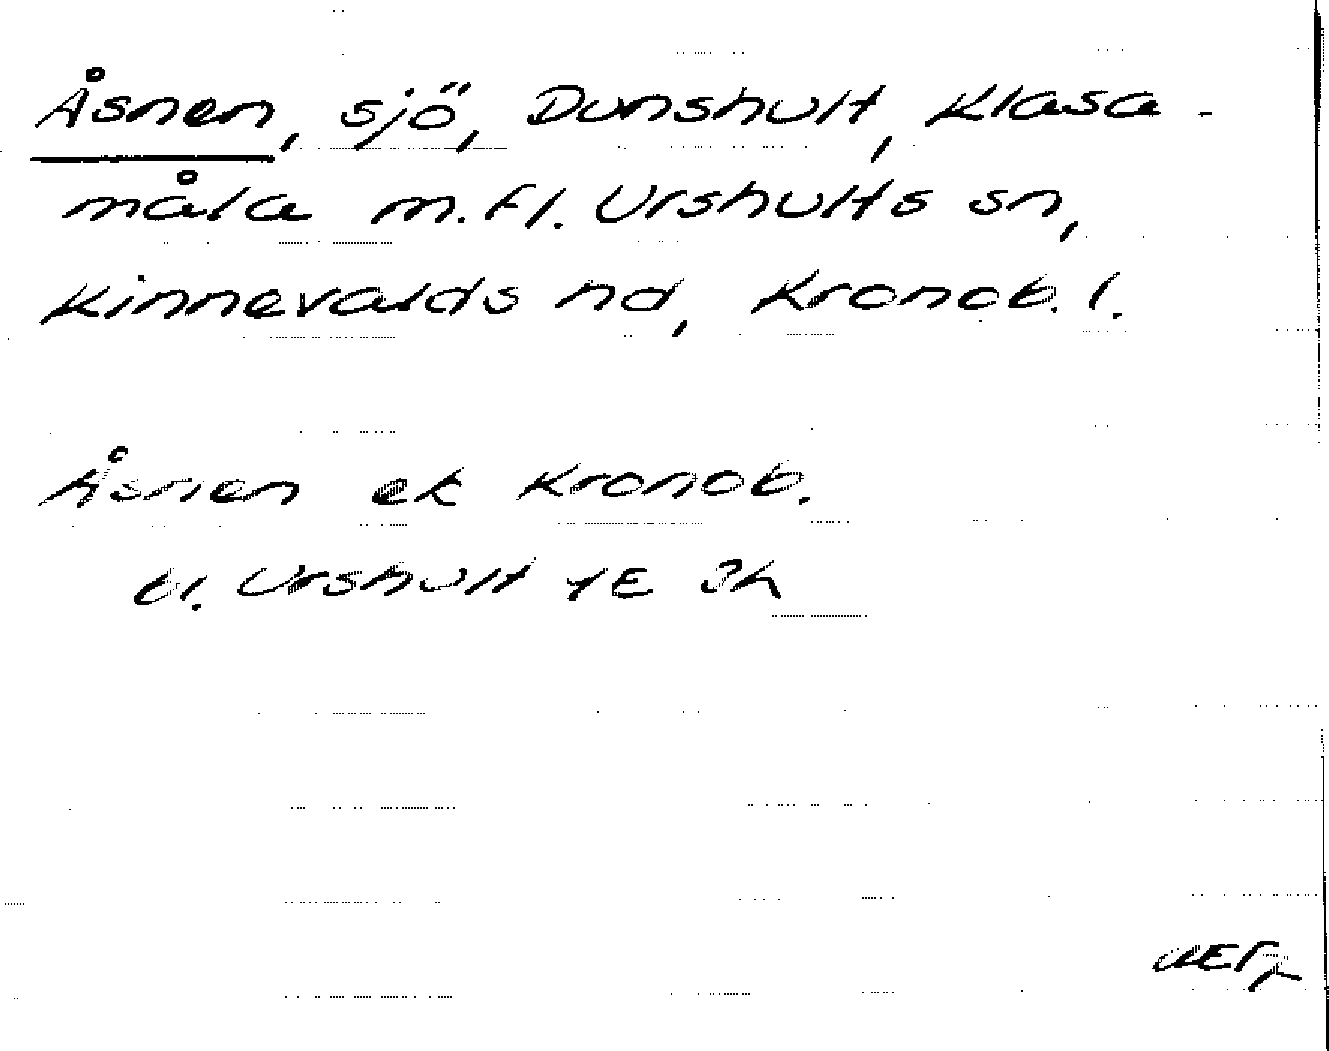 Åsnen, sjö, Dunshult, Klasa-
måla m.fl. Urshults sn,
Kinnevalds hd, Kronob. l.
Åsnen ek Kronob.
bl. Urshult 4E 3h